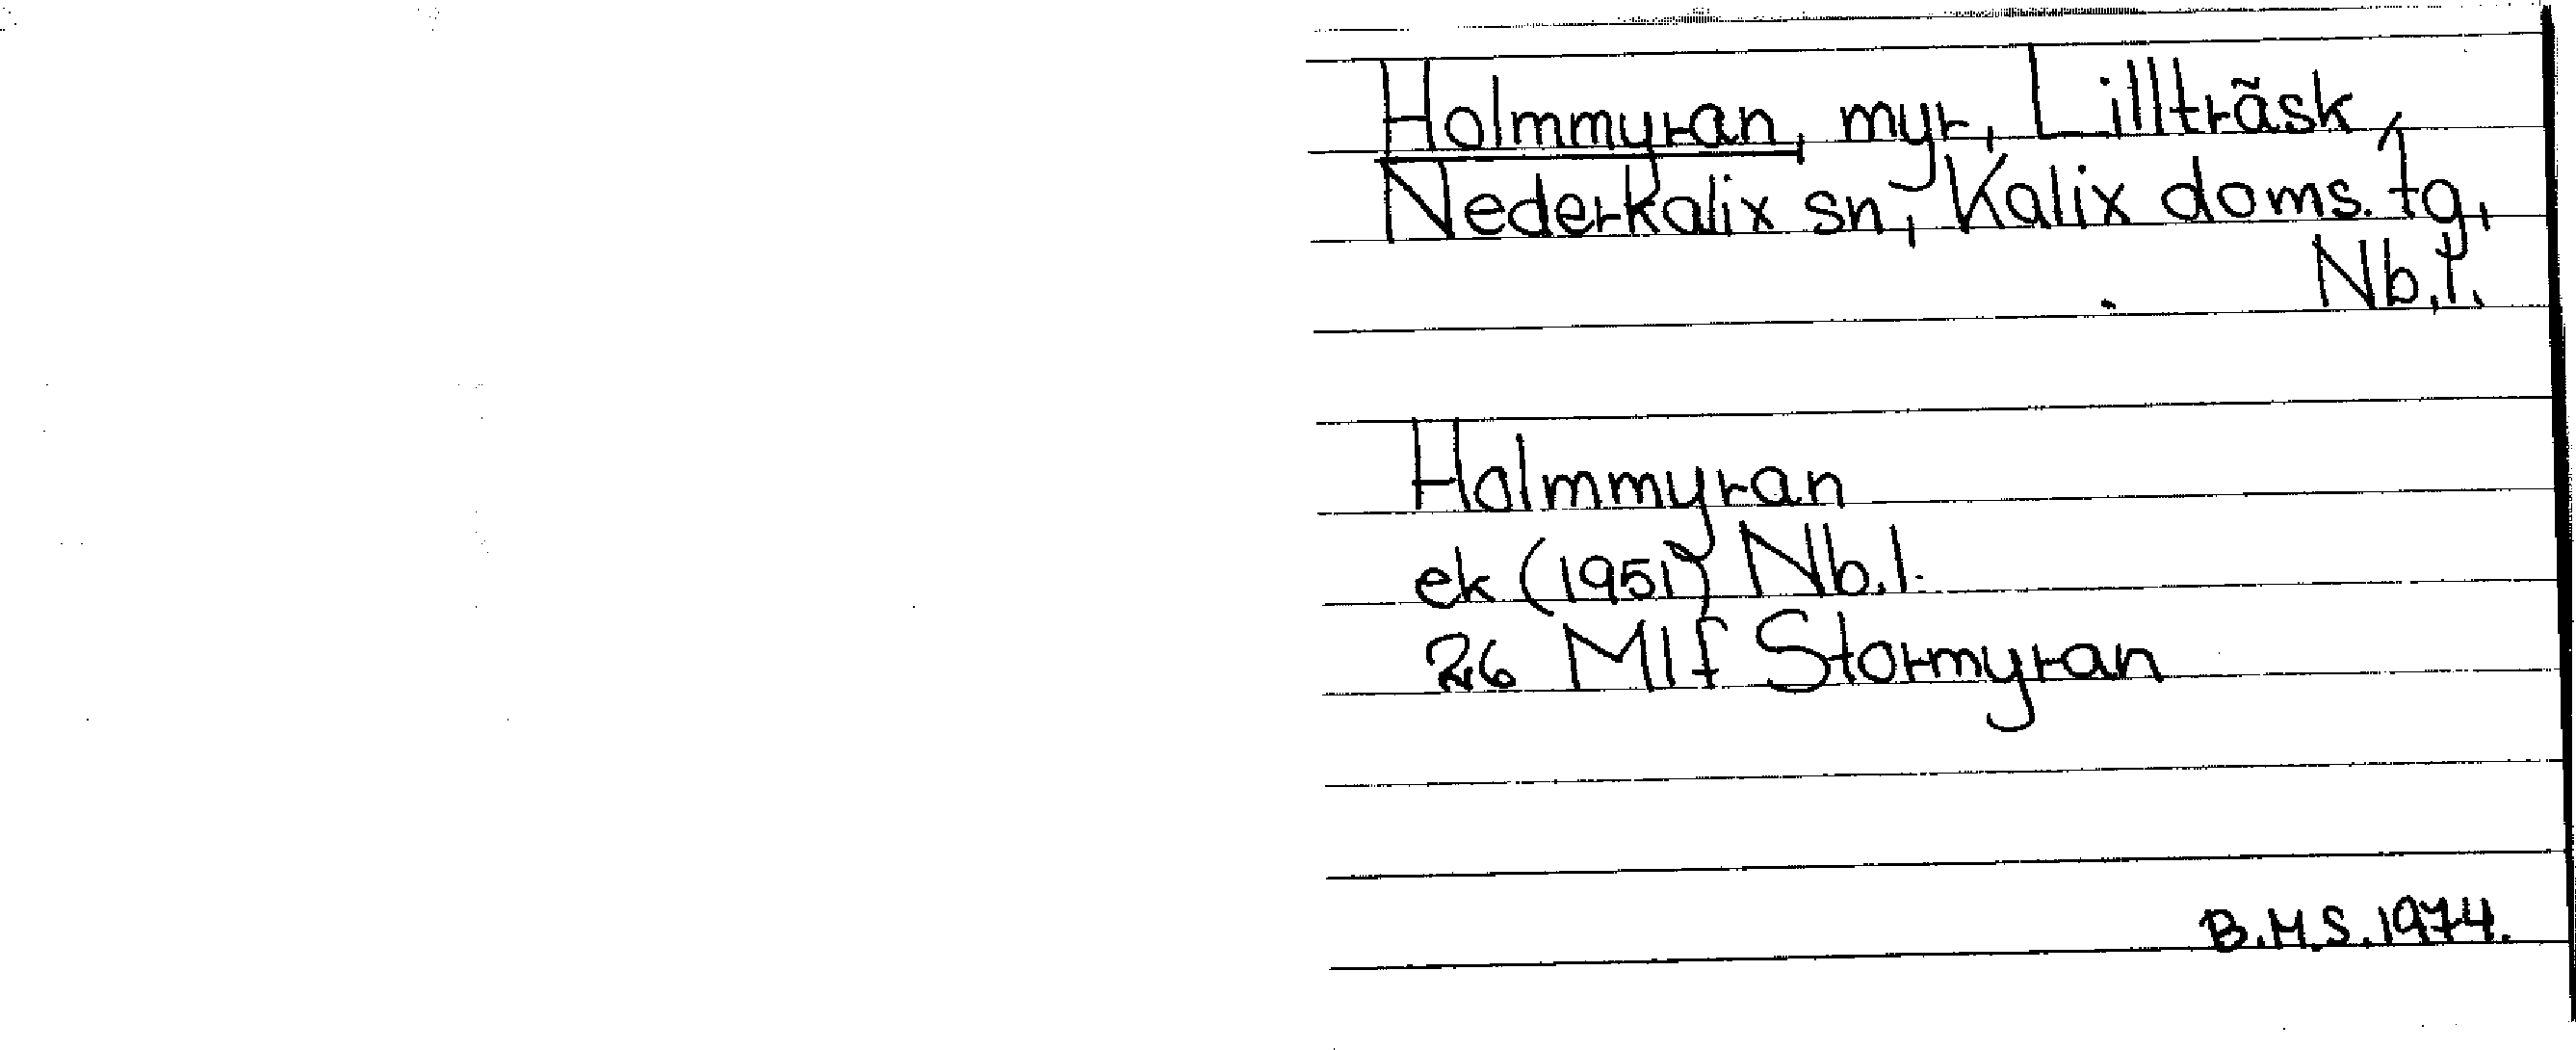 Holmmyran, myr, Lillträsk,
Nederkalix sn, Kalix doms. tg,
Nb.l.
Holmmyran
ek (1951) Nb.l.
26 Mlf Stormyran
B.M.S. 1974.